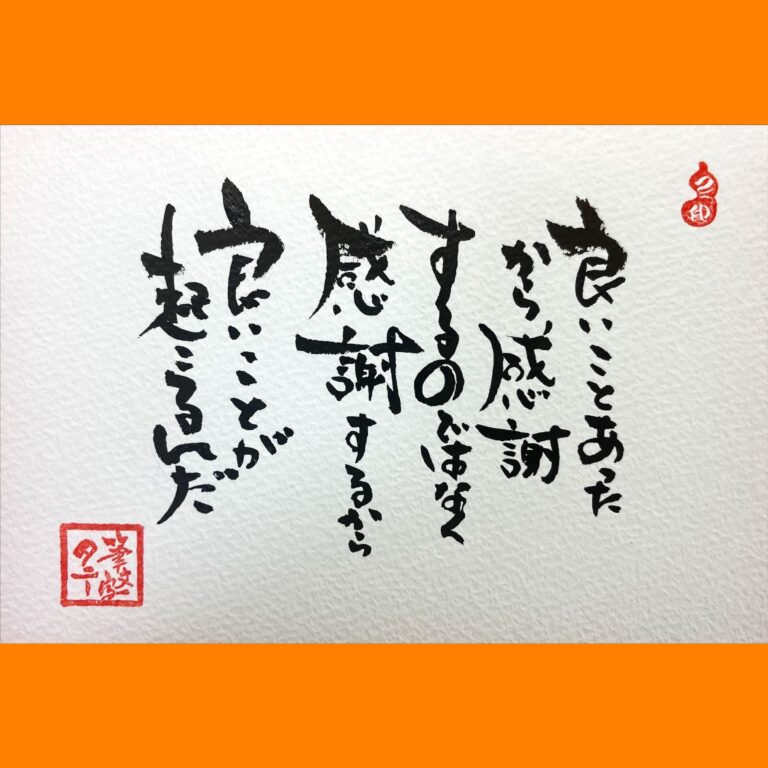 良いことあった
から感謝
するのではなく
感謝するから
良いことが
起こるんだ